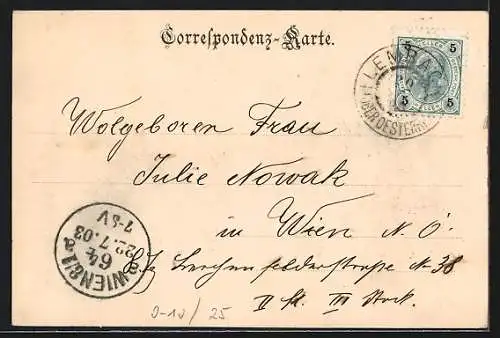 Correspondenz-Karte.
5 5
5 5
LEMBACH
OBEROESTERR
Wolgeboren Frau
Julie Nowak
in Wien N. Ö.
Lerchenfelderstraße N 38
II St. III Stock.
WIEN 8/1
64
22.7.03
7-8V
9-10/25